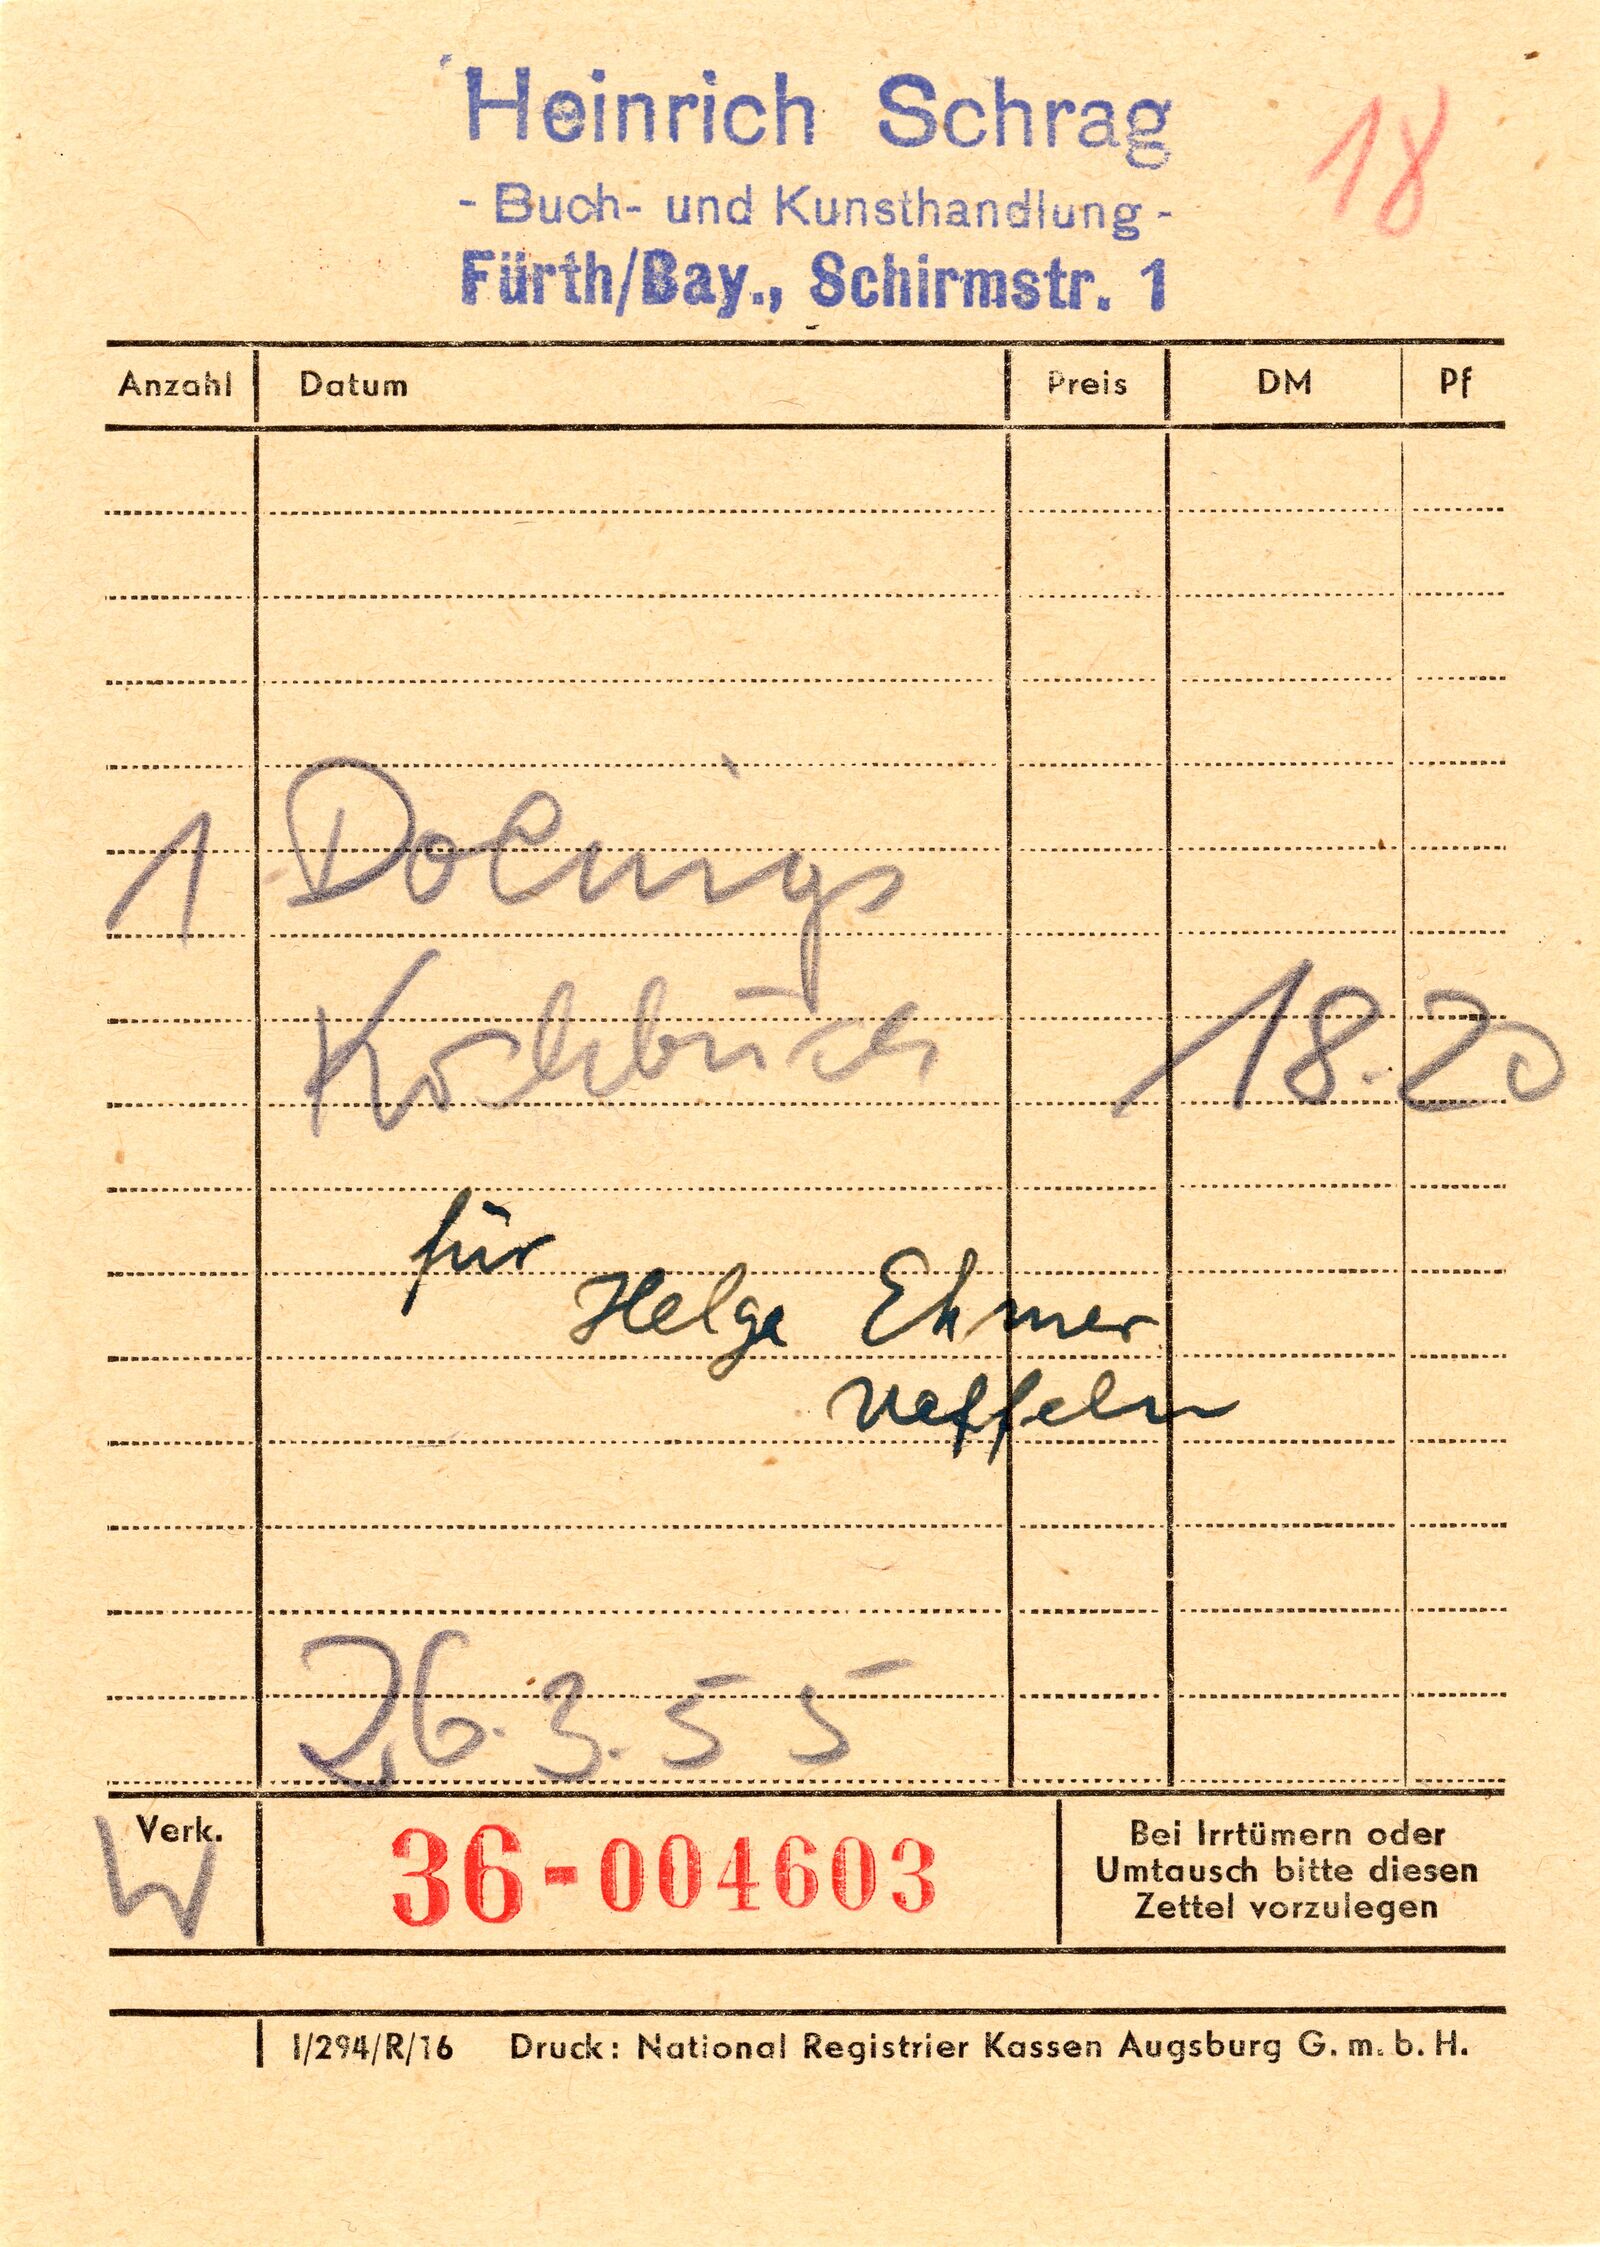 Heinrich Schrag
18
- Buch- und Kunsthandlung -
Fürth/Bay., Schirmstr. 1
Anzahl Datum Preis DM Pf
1
Kochbuch 18.20
für
Helge Ehmer
Neffeln
26.3.55
Verk.
W
36-004603
Bei Irrtümern oder
Umtausch bitte diesen
Zettel vorzulegen
I/294/R/16 Druck: National Registrier Kassen Augsburg G.m.b.H.